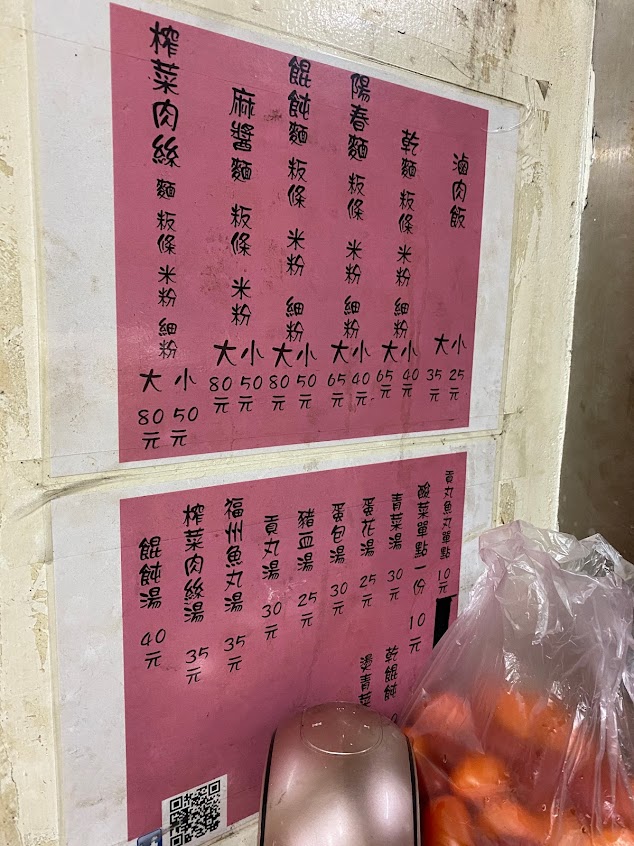 滷肉飯 大 35元 小 25元
乾麵 粄條 米粉 細粉 大 65元 小 40元
陽春麵 粄條 米粉 細粉 大 65元 小 40元
餛飩麵 粄條 米粉 細粉 大 80元 小 50元
麻醬麵 粄條 米粉 大 80元 小 50元
榨菜肉絲麵 粄條 米粉 細粉 大 80元 小 50元
貢丸魚丸單點 10元
酸菜單點一份 10元
青菜湯 30元
蛋花湯 25元
蛋包湯 30元
豬血湯 25元
貢丸湯 30元
福州魚丸湯 35元
榨菜肉絲湯 35元
餛飩湯 40元
乾餛飩
燙青菜